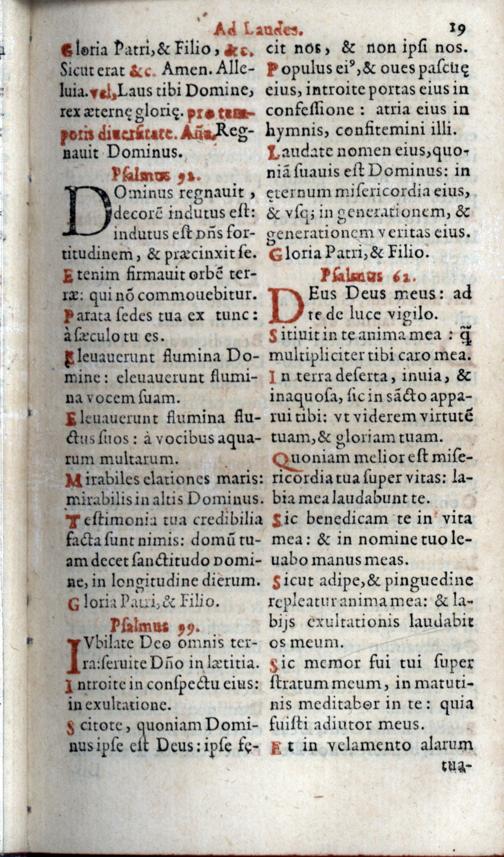 Ad Laudes.
19
Gloria Patri, & Filio, &c.
Sicut erat &c. Amen. Alle-
luia. vel, Laus tibi Domine,
rex æternę glorię. pro tem-
poris diuersitate. Aña, Reg-
nauit Dominus.
Psalmus 92.
DOminus regnauit,
decorē indutus est:
indutus est Dñs for-
titudinem, & præcinxit se.
Etenim firmauit orbē ter-
ræ: qui nō commouebitur.
Parata sedes tua ex tunc:
à sæculo tu es.
Eleuauerunt flumina Do-
mine: eleuauerunt flumi-
na vocem suam.
Eleuauerunt flumina flu-
ctus suos: à vocibus aqua-
rum multarum.
Mirabiles elationes maris:
mirabilis in altis Dominus.
Testimonia tua credibilia
facta sunt nimis: domū tu-
am decet sanctitudo Domi-
ne, in longitudine dierum.
Gloria Patri, & Filio.
Psalmus 99.
IVbilate Deo omnis ter-
ra: seruite Dño in lætitia.
Introite in conspectu eius:
in exultatione.
Scitote, quoniam Domi-
nus ipse est Deus: ipse fę-
cit nos, & non ipsi nos.
Populus ei⁹, & oues pascuę
eius, introite portas eius in
confessione: atria eius in
hymnis, confitemini illi.
Laudate nomen eius, quo-
niā suauis est Dominus: in
ęternum misericordia eius,
& vsq; in generationem, &
generationem veritas eius.
Gloria Patri, & Filio.
Psalmus 62.
DEus Deus meus: ad
te de luce vigilo.
Sitiuit in te anima mea: q̃
multipliciter tibi caro mea.
In terra deserta, inuia, &
inaquosa, sic in sācto appa-
rui tibi: vt viderem virtutē
tuam, & gloriam tuam.
Quoniam melior est mise-
ricordia tua super vitas: la-
bia mea laudabunt te.
Sic benedicam te in vita
mea: & in nomine tuo le-
uabo manus meas.
Sicut adipe, & pinguedine
repleatur anima mea: & la-
bijs exultationis laudabit
os meum.
Sic memor fui tui super
stratum meum, in matuti-
nis meditabor in te: quia
fuisti adiutor meus.
Et in velamento alarum
tua-